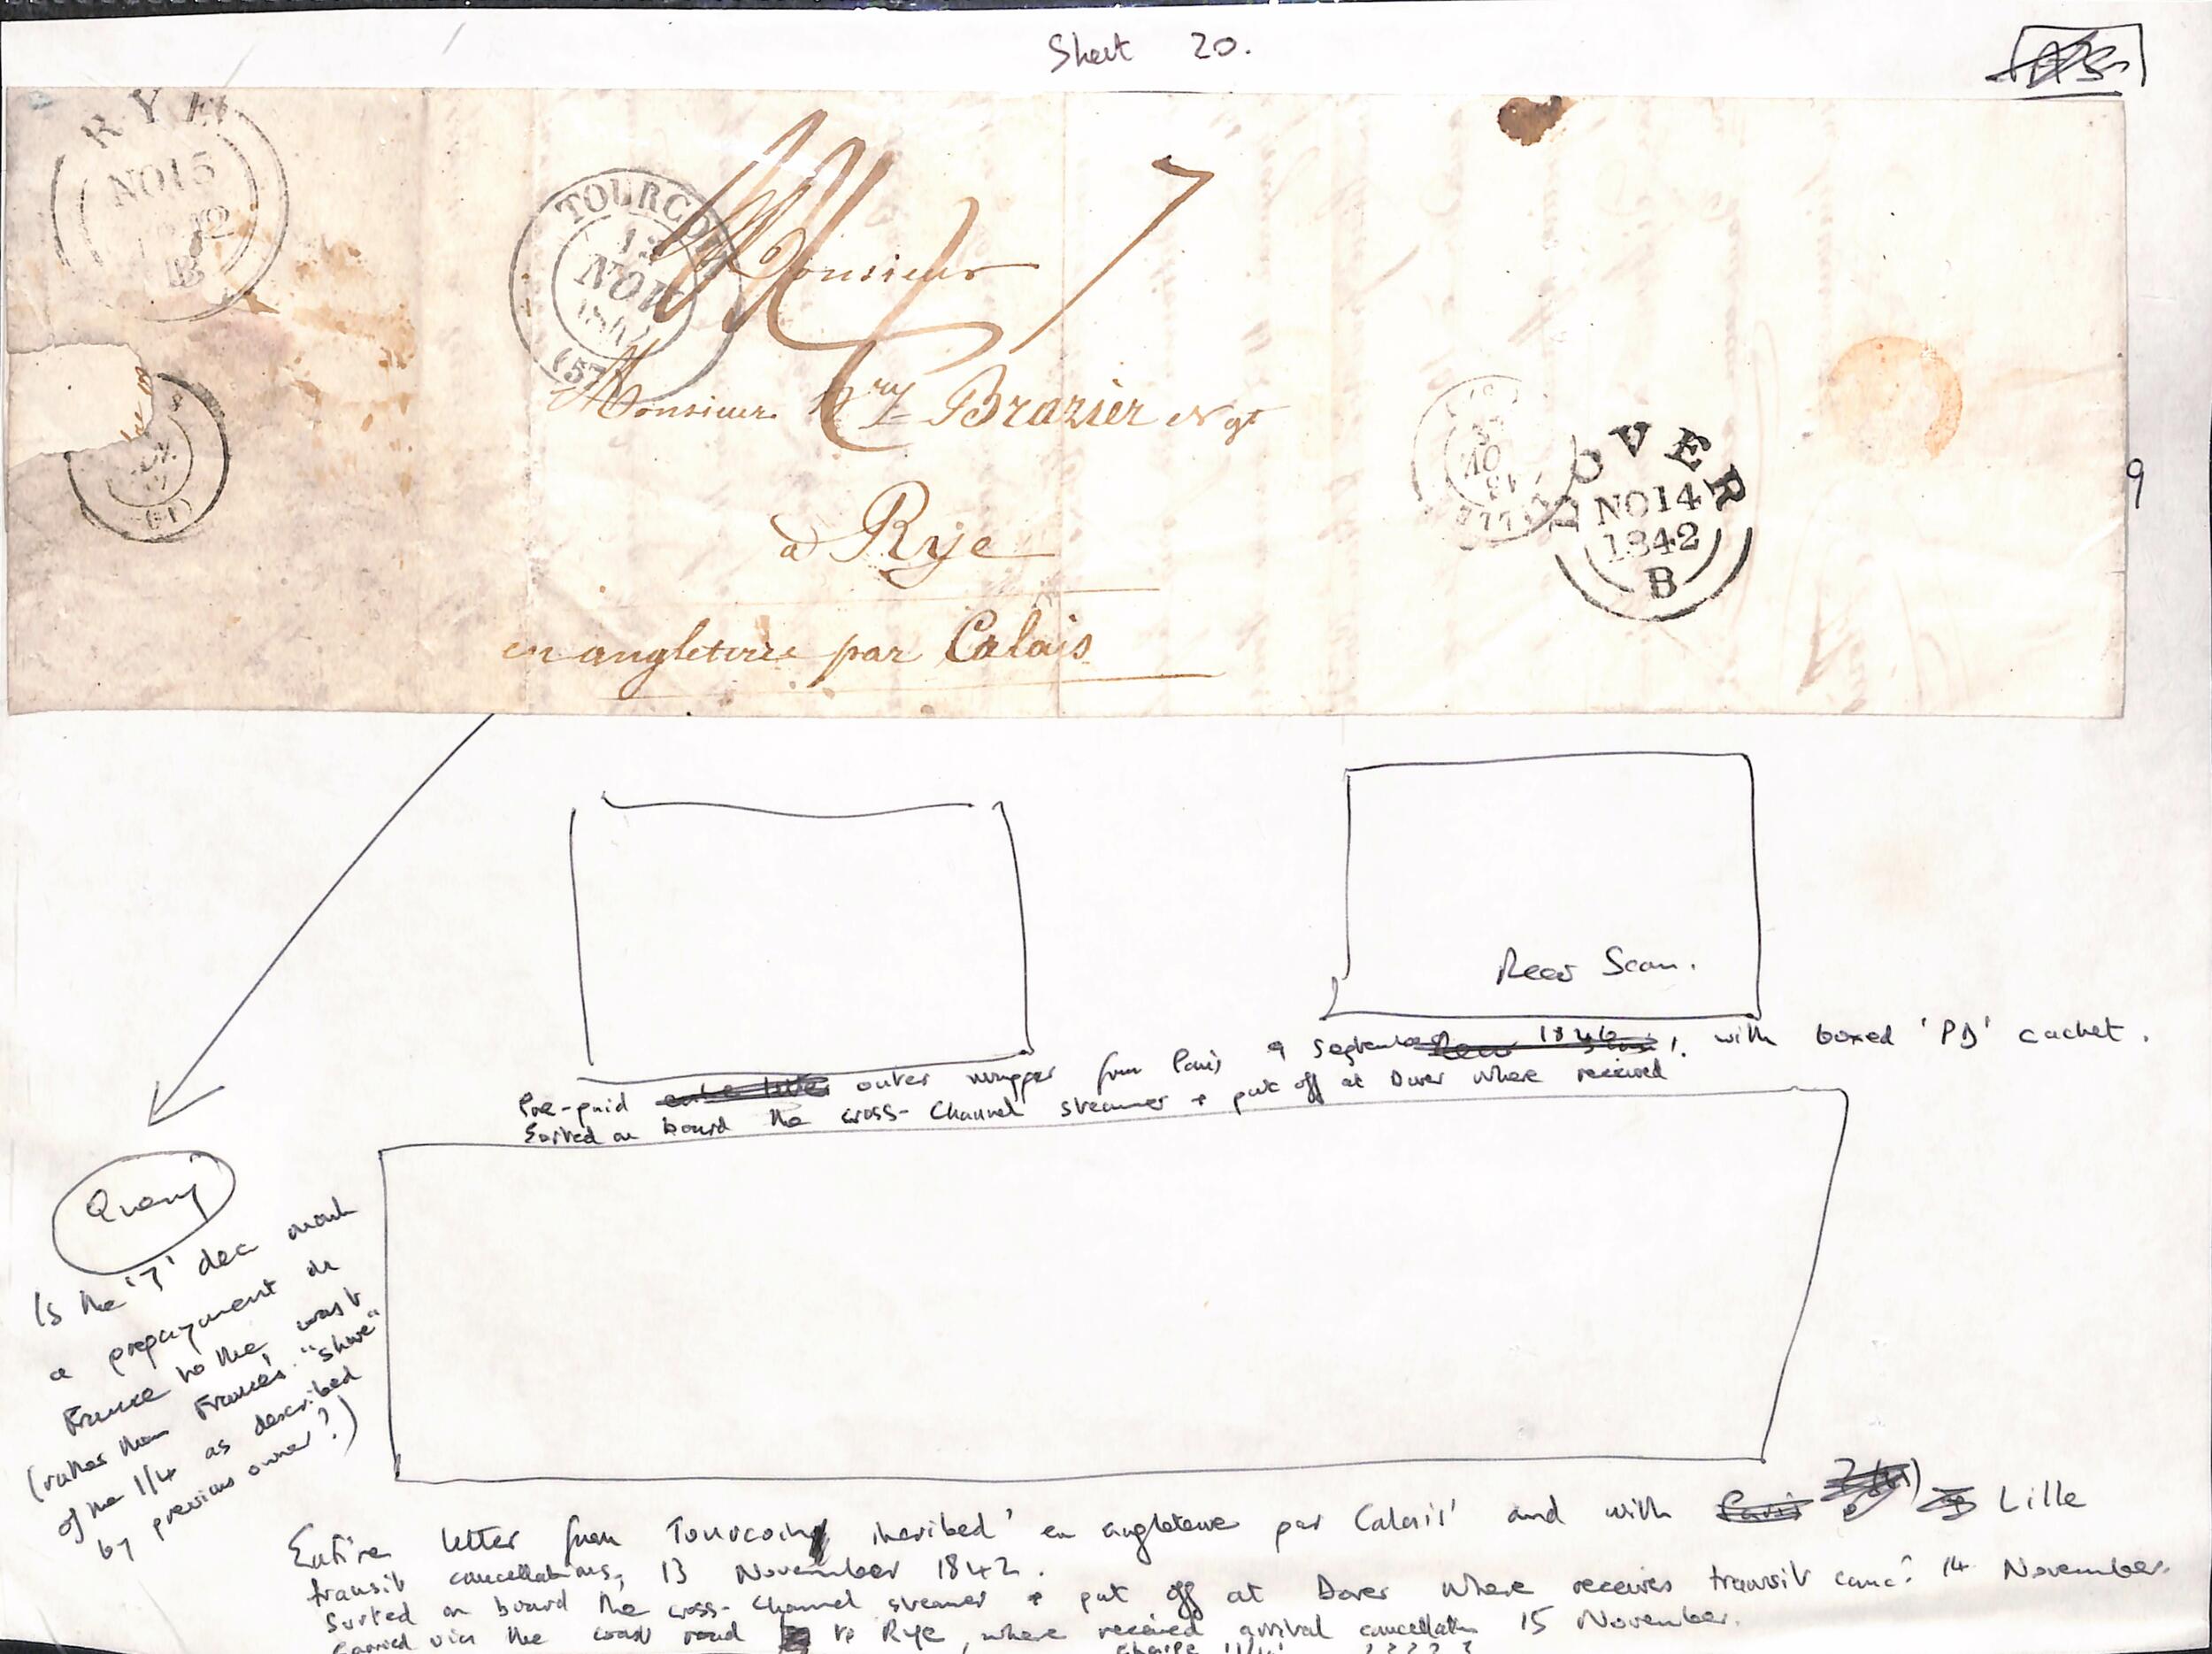 Sheet 20.
RYE
NO 15
B
TOURCOI
13
NOV
(57
7
Monsieur
Monsieur hry Brazier Ngt
à Rye
en angleterre par Calais
DOVER
NO 14
1842
B
9
Rear Scan.
Pre-paid outer wrapper from Paris 9 September 1846 with boxed 'PD' cachet.
Sorted on board the cross-Channel steamer + put off at Dover where received
Query
Is the '7' dec mark
a prepayment in
France to the coast
(rather than France's "share"
of the 1/4 as described
by previous owner?)
Entire letter from Tourcoing incribed 'en angleterre par Calais' and with Lille
transit cancellations, 13 November 1842.
Sorted on board the cross-channel steamer + put off at Dover where receives transit canc: 14 November.
Carried via the coast road to Rye, where received arrival cancellation 15 November.
charge '1/4' ? ? ? ? ?